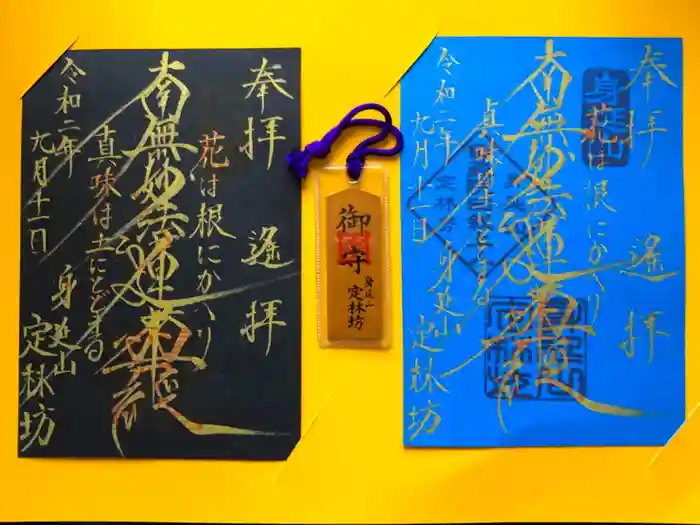 奉拝
遙拝
花は根にかへり
南無妙法蓮華経
真味は土にとどまる
令和二年
九月十一日
身延山
定林坊
御守
身延山
定林坊
奉拝
遙拝
花は根にかへり
南無妙法蓮華経
真味は土にとどまる
令和二年
九月十一日
身延山
定林坊